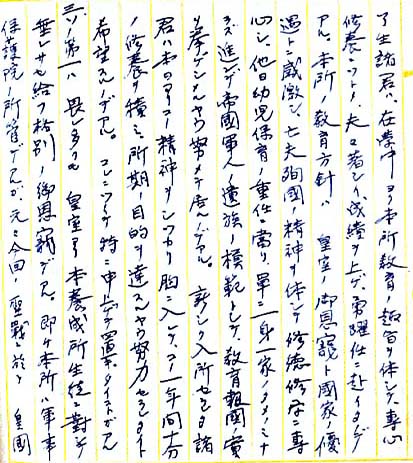 了生諸君ハ、在學中ヨク本所教育ノ趣旨ヲ体シテ、専心
修養ニツトメ、夫々著シイ成績ヲ上ゲ、勇躍任ニ赴イタノデ
アル。本所ノ教育方針ハ 皇室ノ御恩寵ト國家ノ優
遇トニ感激シ、亡夫殉國ノ精神ヲ体シテ修徳修学ニ専
心シ、他日幼児保育ノ重任ニ當リ、單ニ一身一家ノタメノミナ
ラズ進ンデ帝國軍人ノ遺族ノ模範トシテ教育報國ノ實
ヲ挙ゲシメルヤウ努メテ居ルノデアル。新シク入所セラルヽ諸
君ハ本日ヨリコノ精神ヲシッカリ胸ニ入レテ、コノ一年間十分
ノ修養ヲ積ミ、所期ノ目的ヲ達スルヤウ努力セラレタイト
希望スルノデアル。コレニツイテ特ニ申上ゲテ置キタイコトガアル
三、ソノ第一ハ 畏レ多クモ 皇室ヨリ本養成所生徒ニ對シテ
垂レサセ給フ格別ノ御恩寵デアル。即チ本所ハ軍事
保護院ノ所管デアルガ、元々今回ノ聖戰ニ於テ 皇國